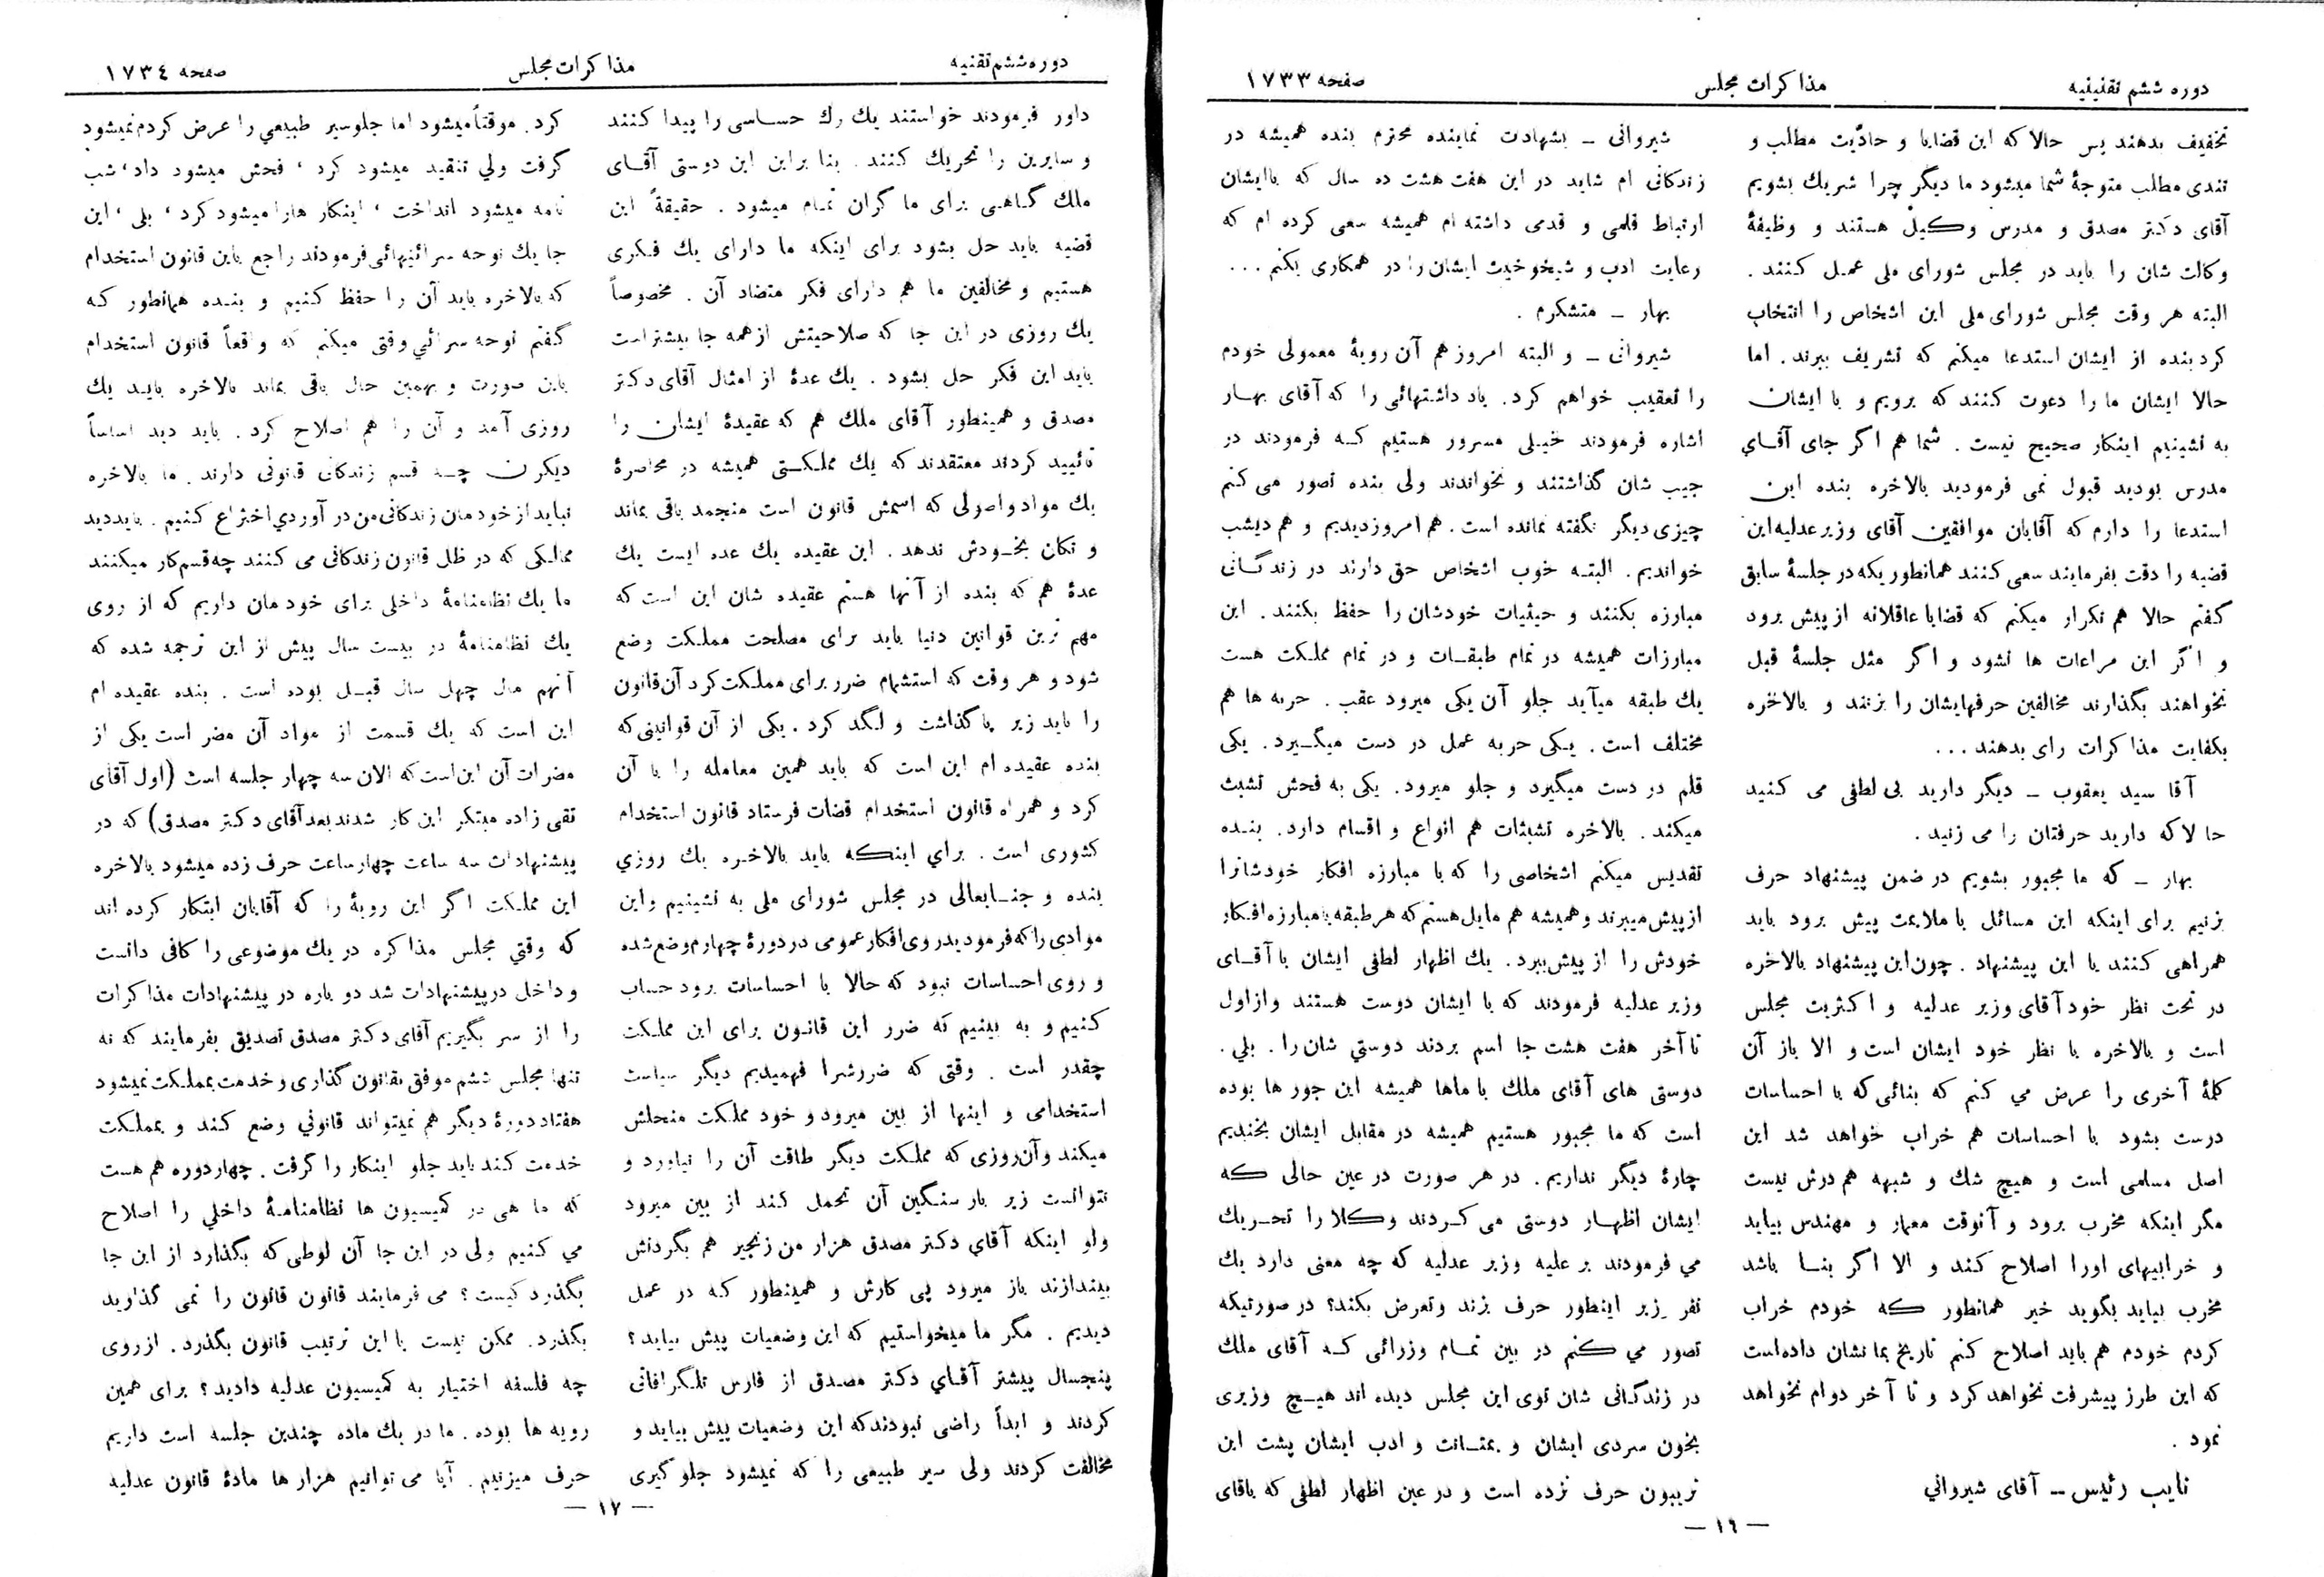 دوره ششم تقنینیه
مذاکرات مجلس
صفحه ۱۷۳۳
تخفیف بدهند پس حالا که این قضایا و حادّیت مطلب و
تندی مطلب متوجهٔ شما میشود ما دیگر چرا شریك بشویم
آقای دکتر مصدق و مدرس وکیل هستند و وظیفهٔ
وکالت شان را باید در مجلس شورای ملی عمل کنند .
البته هر وقت مجلس شورای ملی این اشخاص را انتخاب
کرد بنده از ایشان استدعا میکنم که تشریف ببرند. اما
حالا ایشان ما را دعوت کنند که برویم و با ایشان
به نشینیم اینکار صحیح نیست . شما هم اگر جای آقای
مدرس بودید قبول نمی فرمودید بالاخره بنده این
استدعا را دارم که آقایان موافقین آقای وزیر عدلیه این
قضیه را دقت بفرمایند سعی کنند همانطوریکه در جلسهٔ سابق
گفتم حالا هم تکرار میکنم که قضایا عاقلانه از پیش برود
و اگر این مراعات ها نشود و اگر مثل جلسهٔ قبل
نخواهند بگذارند مخالفین حرفهایشان را بزنند و بالاخره
بکفایت مذاکرات رای بدهند ...
آقا سید یعقوب ــ دیگر دارید بی لطفی می کنید
حا لاکه دارید حرفتان را می زنید .
بهار ــ که ما مجبور بشویم در ضمن پیشنهاد حرف
بزنیم برای اینکه این مسائل با ملایمت پیش برود باید
همراهی کنند با این پیشنهاد . چون این پیشنهاد بالاخره
در تحت نظر خود آقای وزیر عدلیه و اکثریت مجلس
است و بالاخره با نظر خود ایشان است و الا باز آن
کلمهٔ آخری را عرض می کنم که بنائی که با احساسات
درست بشود با احساسات هم خراب خواهد شد این
اصل مسلمی است و هیچ شك و شبهه هم درش نیست
مگر اینکه مخرب برود و آنوقت معمار و مهندس بیاید
و خرابیهای اورا اصلاح کند و الا اگر بنا باشد
مخرب بیاید بگوید خیر همانطور که خودم خراب
کردم خودم هم باید اصلاح کنم تاریخ بما نشان داده است
که این طرز پیشرفت نخواهد کرد و تا آخر دوام نخواهد
نمود .
نایب رئیس ــ آقای شیروانی
شیروانی ــ بشهادت نماینده محترم بنده همیشه در
زندکانی ام شاید در این هفت هشت ده سال که باایشان
ارتباط قلمی و قدمی داشته ام همیشه سعی کرده ام که
رعایت ادب و شیخوخیت ایشان را در همکاری بکنم ...
بهار ــ متشکرم .
شیروانی ــ و البته امروز هم آن رویهٔ معمولی خودم
را تعقیب خواهم کرد. یاد داشتهائی را که آقای بهار
اشاره فرمودند خیلی مسرور هستیم که فرمودند در
جیب شان گذاشتند و نخواندند ولی بنده تصور می کنم
چیزی دیگر نگفته نمانده است. هم امروز دیدیم و هم دیشب
خواندیم. البته خوب اشخاص حق دارند در زندگانی
مبارزه بکنند و حیثیات خودشان را حفظ بکنند. این
مبارزات همیشه در تمام طبقات و در تمام مملکت هست
یك طبقه میآید جلو آن یکی میرود عقب. حربه ها هم
مختلف است. یکی حربه عمل در دست میگیرد. یکی
قلم در دست میگیرد و جلو میرود. یکی به فحش تشبث
میکند. بالاخره تشبثات هم انواع و اقسام دارد. بنده
تقدیس میکنم اشخاصی را که با مبارزه افکار خودشانرا
از پیش میبرند و همیشه هم مایل هستم که هر طبقه با مبارزه افکار
خودش را از پیش ببرد. یك اظهار لطفی ایشان با آقای
وزیر عدلیه فرمودند که با ایشان دوست هستند و از اول
تا آخر هفت هشت جا اسم بردند دوستی شان را . بلی.
دوستی های آقای ملك با ماها همیشه این جور ها بوده
است که ما مجبور هستیم همیشه در مقابل ایشان بخندیم
چارهٔ دیگر نداریم. در هر صورت در عین حالی که
ایشان اظهار دوستی می کردند وکلا را تحریك
می فرمودند بر علیه وزیر عدلیه که چه معنی دارد یك
نفر وزیر اینطور حرف بزند و تعرض بکند؟ در صورتیکه
تصور می کنم در بین تمام وزرائی که آقای ملك
در زندگانی شان توی این مجلس دیده اند هیچ وزیری
بخون سردی ایشان و بمتانت و ادب ایشان پشت این
تریبون حرف نزده است و در عین اظهار لطفی که باقای
— ۱٦ —
دوره ششم تقنیه
مذاکرات مجلس
صفحه ۱۷۳٤
داور فرمودند خواستند یك رك حساسی را پیدا کنند
و سایرین را تحریك کنند. بنا براین این دوستی آقای
ملك گاهی برای ما گران تمام میشود . حقیقةً این
قضیه باید حل بشود برای اینکه ما دارای یك فکری
هستیم و مخالفین ما هم دارای فکر متضاد آن . مخصوصاً
یك روزی در این جا که صلاحیتش از همه جا بیشتر است
باید این فکر حل بشود . یك عدهٔ از امثال آقای دکتر
مصدق و همینطور آقای ملك هم که عقیدهٔ ایشان را
تائیید کردند معتقدند که یك مملکتی همیشه در محاصرهٔ
یك مواد و اصولی که اسمش قانون است منجمد باقی بماند
و تکان بخودش ندهد . این عقیده یك عده ایست یك
عدهٔ هم که بنده از آنها هستم عقیده شان این است که
مهم ترین قوانین دنیا باید برای مصلحت مملکت وضع
شود و هر وقت که استشمام ضرر برای مملکت کرد آن قانون
را باید زیر پا گذاشت و لگد کرد. یکی از آن قوانینی که
بنده عقیده ام این است که باید همین معامله را با آن
کرد و همراه قانون استخدام قضات فرستاد قانون استخدام
کشوری است . برای اینکه باید بالاخره یك روزی
بنده و جنابعالی در مجلس شورای ملی به نشینیم و این
موادی را که فرمودید روی افکار عمومی در دورهٔ چهارم وضع شده
و روی احساسات نبود که حالا با احساسات برود حساب
کنیم و به بینیم که ضرر این قانون برای این مملکت
چقدر است . وقتی که ضررشرا فهمیدیم دیگر سیاست
استخدامی و اینها از بین میرود و خود مملکت منحلش
میکند و آن روزی که مملکت دیگر طاقت آن را نیاورد و
نتوانست زیر بار سنگین آن تحمل کند از بین میرود
ولو اینکه آقای دکتر مصدق هزار من زنجیر هم بگردنش
بیندازند باز میرود پی کارش و همینطور که در عمل
دیدیم . مگر ما میخواستیم که این وضعیات پیش بیاید؟
پنجسال پیشتر آقای دکتر مصدق از فارس تلگرافاتی
کردند و ابداً راضی نبودند که این وضعیات پیش بیاید و
مخالفت کردند ولی سیر طبیعی را که نمیشود جلو گیری
کرد. موقتاً میشود اما جلو سیر طبیعی را عرض کردم نمیشود
گرفت ولی تنقید میشود کرد ، فحش میشود داد، شب
نامه میشود انداخت ، اینکار هارا میشود کرد، بلی ، این
جا یك نوحه سرائیهائی فرمودند راجع باین قانون استخدام
که بالاخره باید آن را حفظ کنیم و بنده همانطور که
گفتم نوحه سرائی وقتی میکنم که واقعاً قانون استخدام
باین صورت و بهمین حال باقی بماند بالاخره باید یك
روزی آمد و آن را هم اصلاح کرد . باید دید اساساً
دیگران چه قسم زندکانی قانونی دارند. ما بالاخره
نباید از خودمان زندکانی من در آوردی اختراع کنیم . باید دید
ممالکی که در ظل قانون زندکانی می کنند چه قسم کار میکنند
ما یك نظامنامهٔ داخلی برای خودمان داریم که از روی
یك نظامنامهٔ در بیست سال پیش از این ترجمه شده که
آنهم مال چهل سال قبل بوده است . بنده عقیده ام
این است که یك قسمت از مواد آن مضر است یکی از
مضرات آن این است که الان سه چهار جلسه است (اول آقای
تقی زاده مبتکر این کار شدند بعد آقای دکتر مصدق) که در
پیشنهادات سه ساعت چهار ساعت حرف زده میشود بالاخره
این مملکت اگر این رویهٔ را که آقایان ابتکار کرده اند
که وقتی مجلس مذاکره در یك موضوعی را کافی دانست
و داخل در پیشنهادات شد دو باره در پیشنهادات مذاکرات
را از سر بگیریم آقای دکتر مصدق تصدیق بفرمایند که نه
تنها مجلس ششم موفق بقانون گذاری و خدمت بمملکت نمیشود
هفتاد دورهٔ دیگر هم نمیتواند قانونی وضع کند و بمملکت
خدمت کند باید جلو اینکار را گرفت. چهار دوره هم هست
که ما هی در کمیسیون ها نظامنامهٔ داخلی را اصلاح
می کنیم ولی در این جا آن لوطی که بگذارد از این جا
بگذرد کیست؟ می فرمایند قانون قانون را نمی گذارید
بگذرد. ممکن نیست با این ترتیب قانون بگذرد. از روی
چه فلسفه اختیار به کمیسیون عدلیه دادید؟ برای همین
رویه ها بوده. ما در یك ماده چندین جلسه است داریم
حرف میزنیم. آیا می توانیم هزار ها مادهٔ قانون عدلیه
— ۱۷ —